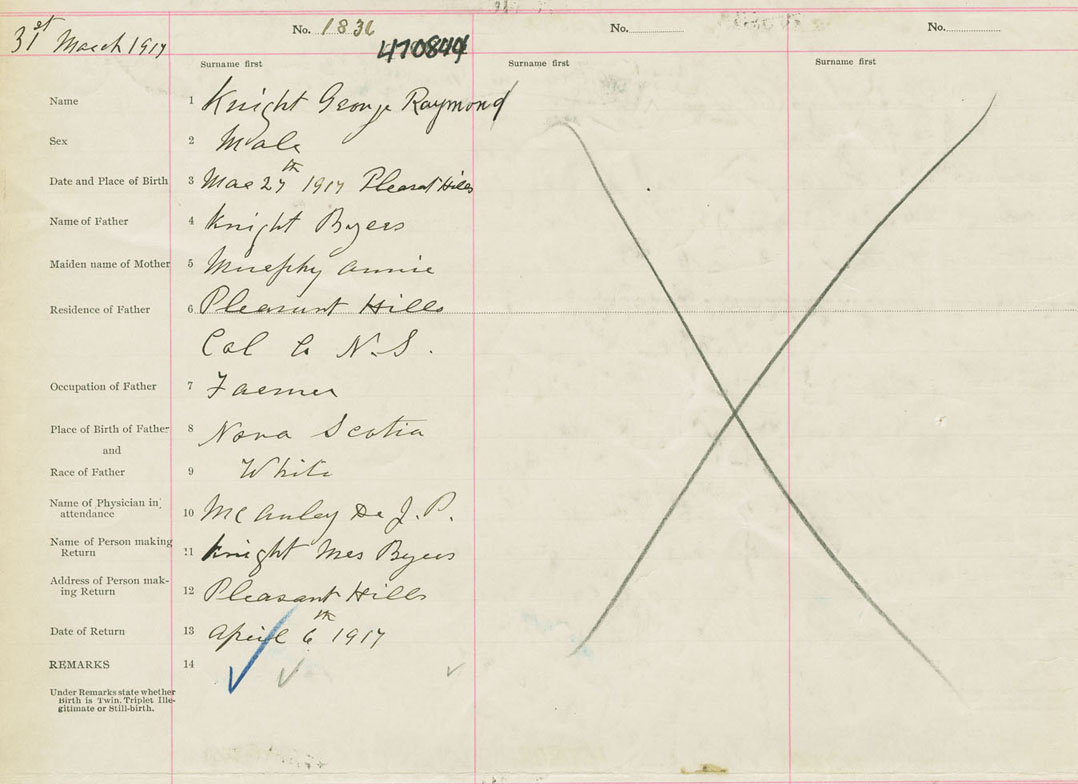 31st March 1917
No. 1836
No.
No.
470844
Surname first
Surname first
Surname first
Name 1 Knight George Raymond
Sex 2 Male
Date and Place of Birth 3 Mar 27th 1917 Pleasat Hills
Name of Father 4 Knight Byers
Maiden name of Mother 5 Murphy Annie
Residence of Father 6 Pleasant Hills
Col Co N.S.
Occupation of Father 7 Farmer
Place of Birth of Father 8 Nova Scotia
and
Race of Father 9 White
Name of Physician in
attendance 10 McAuley Dr J. P.
Name of Person making
Return 11 Knight Mrs Byers
Address of Person mak-
ing Return 12 Pleasant Hills
Date of Return 13 April 6th 1917
REMARKS 14
Under Remarks state whether
Birth is Twin, Triplet Ille-
gitimate or Still-birth.